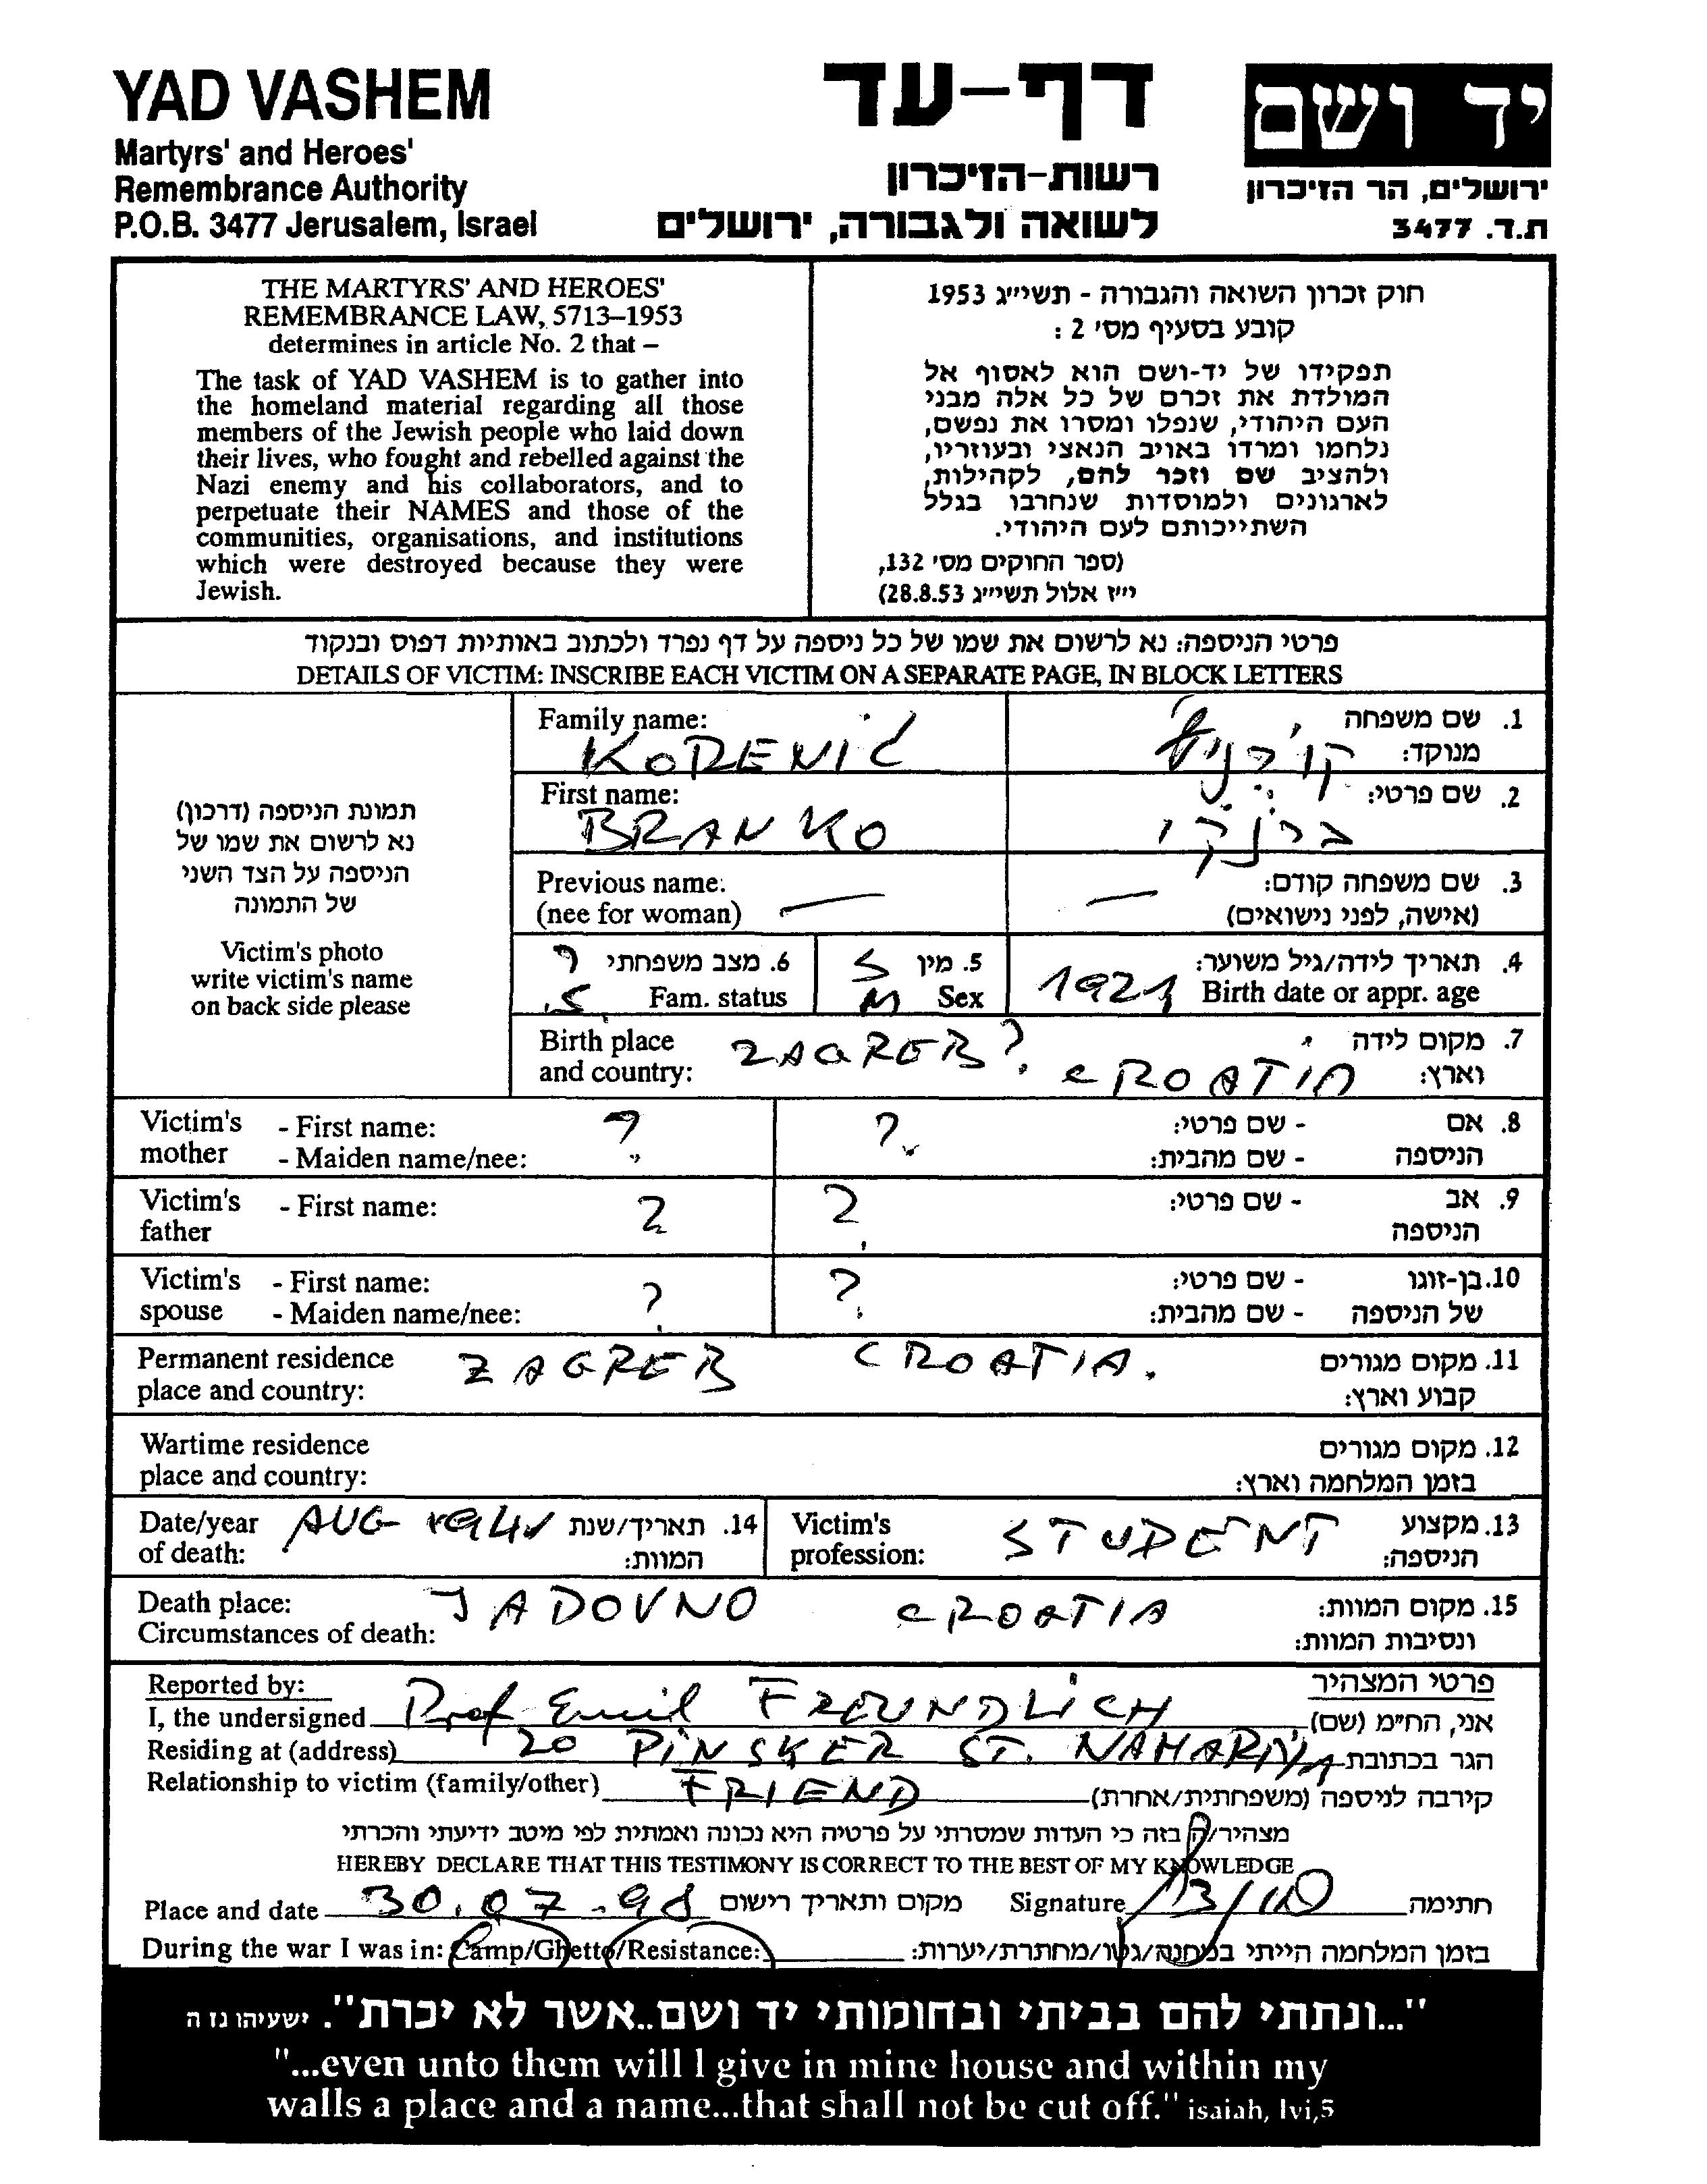 YAD VASHEM
Martyrs' and Heroes'
Remembrance Authority
P.O.B. 3477 Jerusalem, Israel
דף-עד
רשות-הזיכרון
לשואה ולגבורה, ירושלים
יד ושם
ירושלים, הר הזיכרון
ת.ד. 3477
THE MARTYRS' AND HEROES'
REMEMBRANCE LAW, 5713–1953
determines in article No. 2 that –
The task of YAD VASHEM is to gather into
the homeland material regarding all those
members of the Jewish people who laid down
their lives, who fought and rebelled against the
Nazi enemy and his collaborators, and to
perpetuate their NAMES and those of the
communities, organisations, and institutions
which were destroyed because they were
Jewish.
חוק זכרון השואה והגבורה - תשי״ג 1953
קובע בסעיף מס' 2 :
תפקידו של יד-ושם הוא לאסוף אל
המולדת את זכרם של כל אלה מבני
העם היהודי, שנפלו ומסרו את נפשם,
נלחמו ומרדו באויב הנאצי ובעוזריו,
ולהציב שם וזכר להם, לקהילות,
לארגונים ולמוסדות שנחרבו בגלל
השתייכותם לעם היהודי.
(ספר החוקים מס' 132,
י״ז אלול תשי״ג 28.8.53)
פרטי הניספה: נא לרשום את שמו של כל ניספה על דף נפרד ולכתוב באותיות דפוס ובנקוד
DETAILS OF VICTIM: INSCRIBE EACH VICTIM ON A SEPARATE PAGE, IN BLOCK LETTERS
תמונת הניספה (דרכון)
נא לרשום את שמו של
הניספה על הצד השני
של התמונה
Victim's photo
write victim's name
on back side please
Family name: 1. שם משפחה
KORENIĆ מנוקד:
First name: 2. שם פרטי:
BRANKO ברנקו
Previous name: — — 3. שם משפחה קודם:
(nee for woman) (אישה, לפני נישואים)
? 6. מצב משפחתי 5. מין 4. תאריך לידה/גיל משוער:
.S. Fam. status M Sex 1921 Birth date or appr. age
Birth place ZAGREB? 7. מקום לידה
and country: CROATIA וארץ:
Victim's - First name: ? ? - שם פרטי: 8. אם
mother - Maiden name/nee: - שם מהבית: הניספה
Victim's - First name: ? ? - שם פרטי: 9. אב
father הניספה
Victim's - First name: ? ? - שם פרטי: 10. בן-זוגו
spouse - Maiden name/nee: - שם מהבית: של הניספה
Permanent residence ZAGREB CROATIA. 11. מקום מגורים
place and country: קבוע וארץ:
Wartime residence 12. מקום מגורים
place and country: בזמן המלחמה וארץ:
Date/year AUG 1941 14. תאריך/שנת Victim's STUDENT 13. מקצוע
of death: המוות: profession: הניספה:
Death place: JADOVNO CROATIA 15. מקום המוות:
Circumstances of death: ונסיבות המוות:
Reported by: פרטי המצהיר
I, the undersigned Prof Emil FREUNDLICH אני, הח״מ (שם)
Residing at (address) 20 PINSKER ST. NAHARIYA הגר בכתובת
Relationship to victim (family/other) FRIEND קירבה לניספה (משפחתית/אחרת)
מצהיר/ה בזה כי העדות שמסרתי על פרטיה היא נכונה ואמתית לפי מיטב ידיעתי והכרתי
HEREBY DECLARE THAT THIS TESTIMONY IS CORRECT TO THE BEST OF MY KNOWLEDGE
Place and date 30.07.98 מקום ותאריך רישום Signature חתימה
During the war I was in: Camp/Ghetto/Resistance: בזמן המלחמה הייתי במחנה/גטו/מחתרת/יערות:
"...ונתתי להם בביתי ובחומותי יד ושם..אשר לא יכרת". ישעיהו נו ה
"...even unto them will I give in mine house and within my
walls a place and a name...that shall not be cut off." isaiah, lvi,5